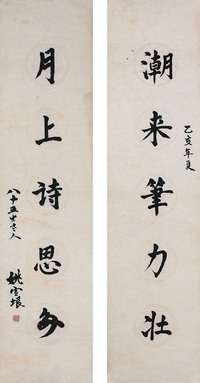 潮来筆力壯
乙亥年夏
月上詩思多
八十五叟書人
姚雪垠